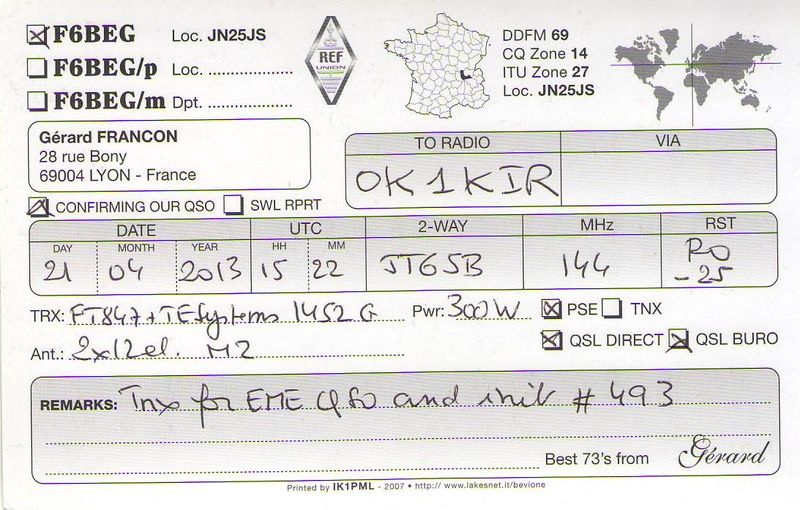 F6BEG Loc. JN25JS
F6BEG/p Loc. ......................
F6BEG/m Dpt. ......................
REF
UNION
DDFM 69
CQ Zone 14
ITU Zone 27
Loc. JN25JS
Gérard FRANCON
28 rue Bony
69004 LYON - France
TO RADIO VIA
OK1KIR
CONFIRMING OUR QSO SWL RPRT
DATE UTC 2-WAY MHz RST
DAY MONTH YEAR HH MM
21 04 2013 15 22 JT65B 144 RO
-25
TRX: FT847+TESystems 1452 G Pwr: 300W PSE TNX
Ant.: 2x12el. M2 QSL DIRECT QSL BURO
REMARKS: Tnx for EME QSO and init # 493
Best 73's from Gérard
Printed by IK1PML - 2007 • http:// www.lakesnet.it/bevione